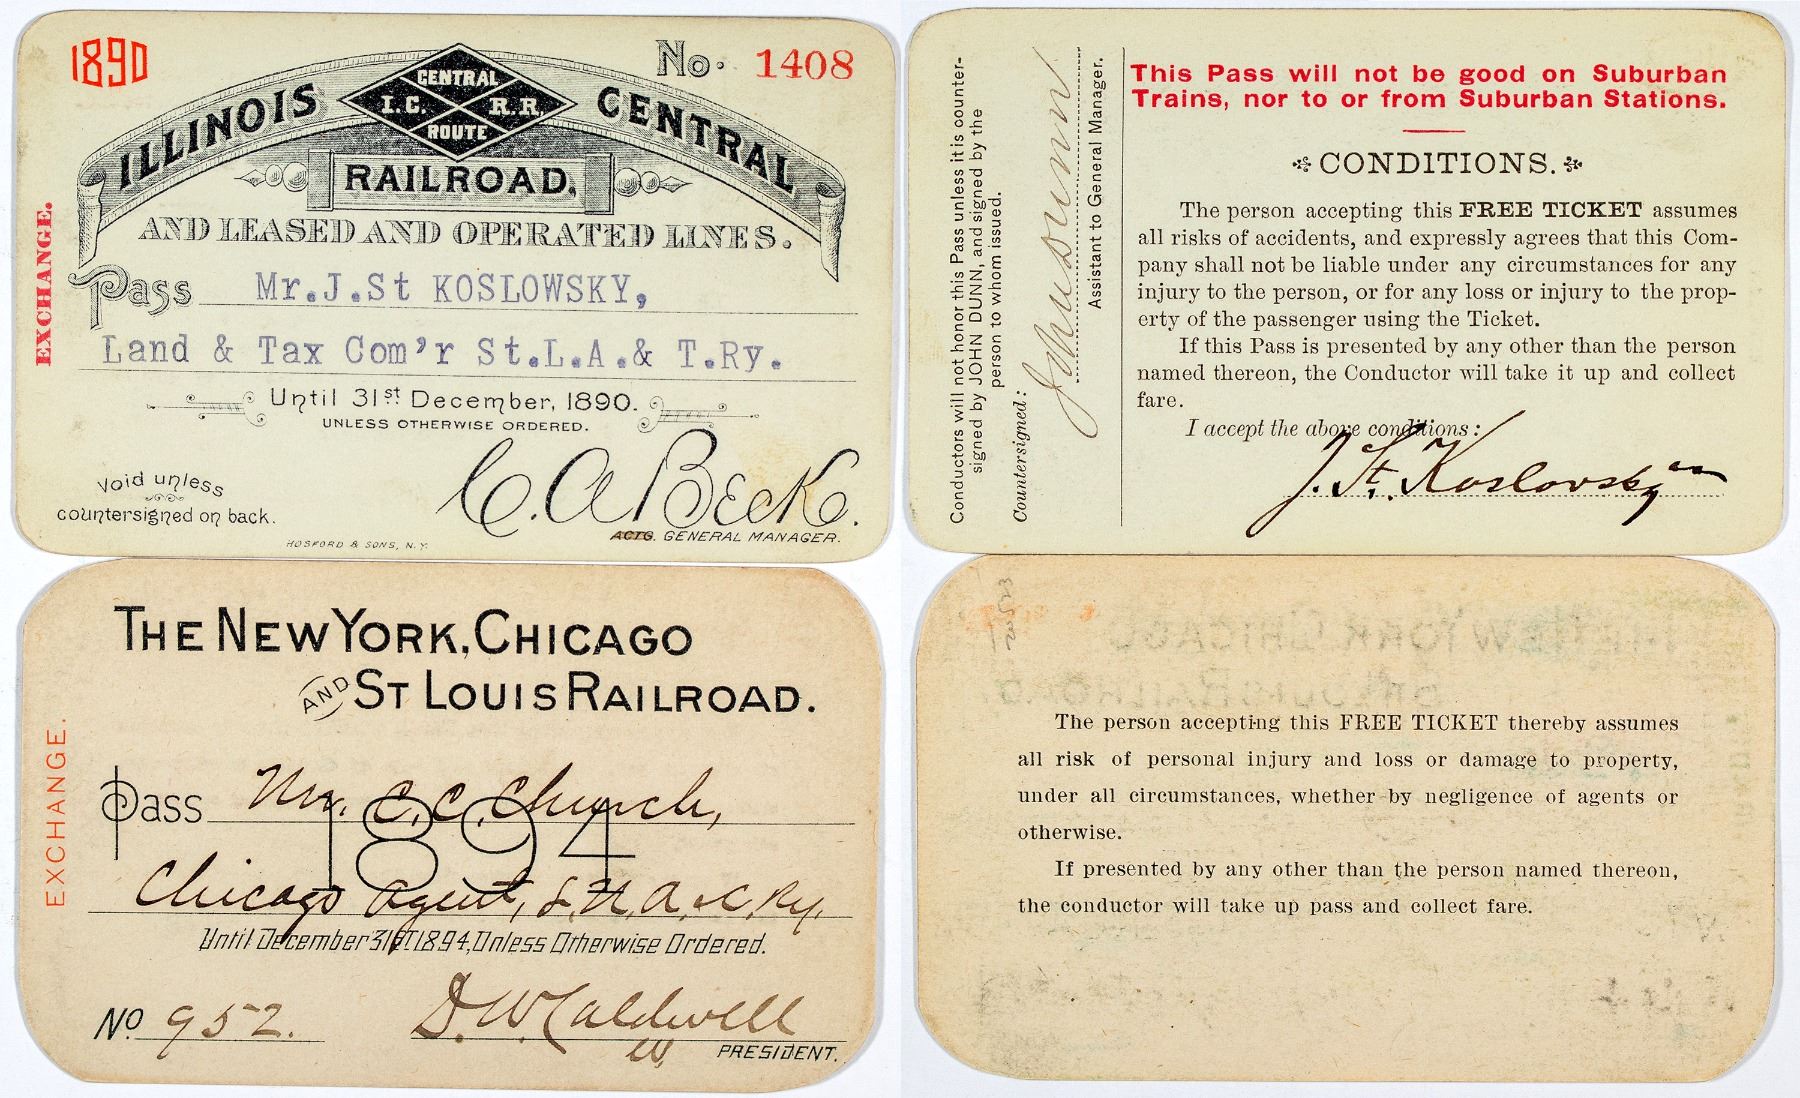 1890
No. 1408
CENTRAL
I.C. R.R.
ROUTE
ILLINOIS CENTRAL
RAILROAD,
AND LEASED AND OPERATED LINES.
EXCHANGE.
Pass Mr.J.St KOSLOWSKY,
Land & Tax Com'r St.L.A.& T.Ry.
Until 31st December, 1890.
UNLESS OTHERWISE ORDERED.
Void unless
countersigned on back.
C. A. Beck.
ACTG. GENERAL MANAGER.
HOSFORD & SONS, N.Y.
Conductors will not honor this Pass unless it is counter-
signed by JOHN DUNN, and signed by the
person to whom issued.
Countersigned:
Assistant to General Manager.
This Pass will not be good on Suburban
Trains, nor to or from Suburban Stations.
CONDITIONS.
The person accepting this FREE TICKET assumes
all risks of accidents, and expressly agrees that this Com-
pany shall not be liable under any circumstances for any
injury to the person, or for any loss or injury to the prop-
erty of the passenger using the Ticket.
If this Pass is presented by any other than the person
named thereon, the Conductor will take it up and collect
fare.
I accept the above conditions:
J. St. Koslowsky
THE NEW YORK, CHICAGO
AND ST LOUIS RAILROAD.
EXCHANGE.
Pass Mr. C. C. Church,
1894
Chicago Agent, L. N. A. & C. Ry.
Until December 31ST 1894, Unless Otherwise Ordered.
No 952.
D. W. Caldwell
PRESIDENT.
The person accepting this FREE TICKET thereby assumes
all risk of personal injury and loss or damage to property,
under all circumstances, whether by negligence of agents or
otherwise.
If presented by any other than the person named thereon,
the conductor will take up pass and collect fare.